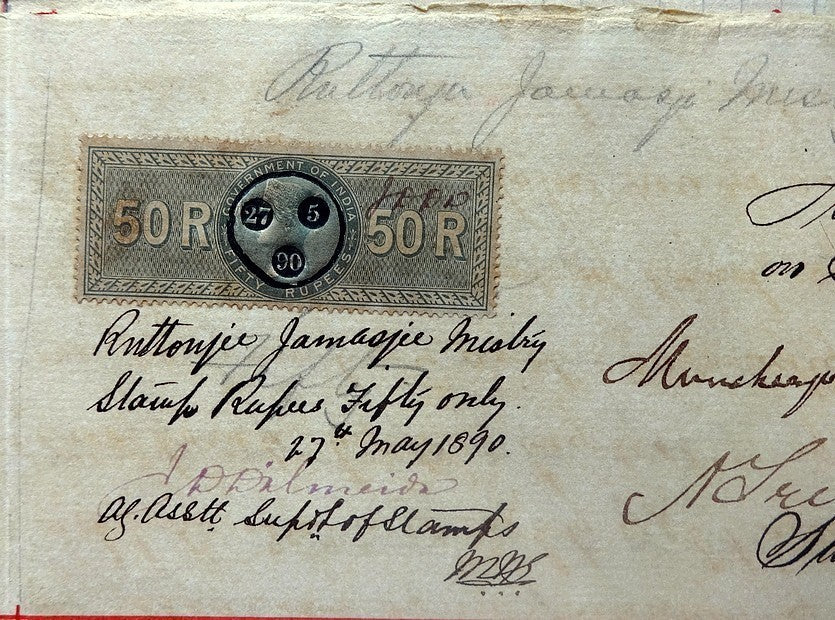 Ruttonjee Jamasji
GOVERNMENT OF INDIA
50 R 27 5 50 R
90
FIFTY RUPEES
on
Ruttonjee Jamasjee Mistry
Stamp Rupees Fifty only.
27th May 1890.
J D D'Almeida
Ag. Asstt Supdt of Stamps